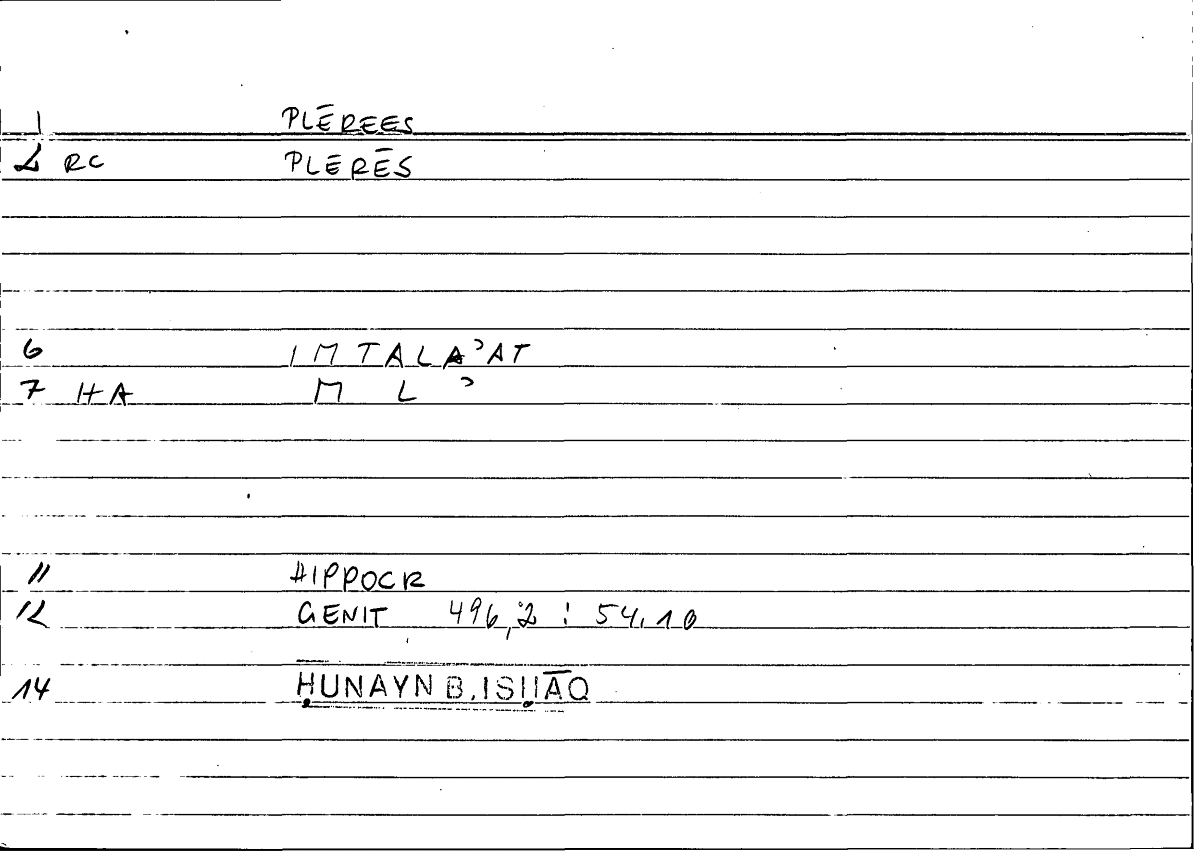 1 PLĒREES
2 RC PLERĒS
6 IMTALAʾAT
7 HA M L ʾ
11 HIPPOCR
12 GENIT 496,2 : 54.10
14 ḤUNAYN B. ISḤĀQ